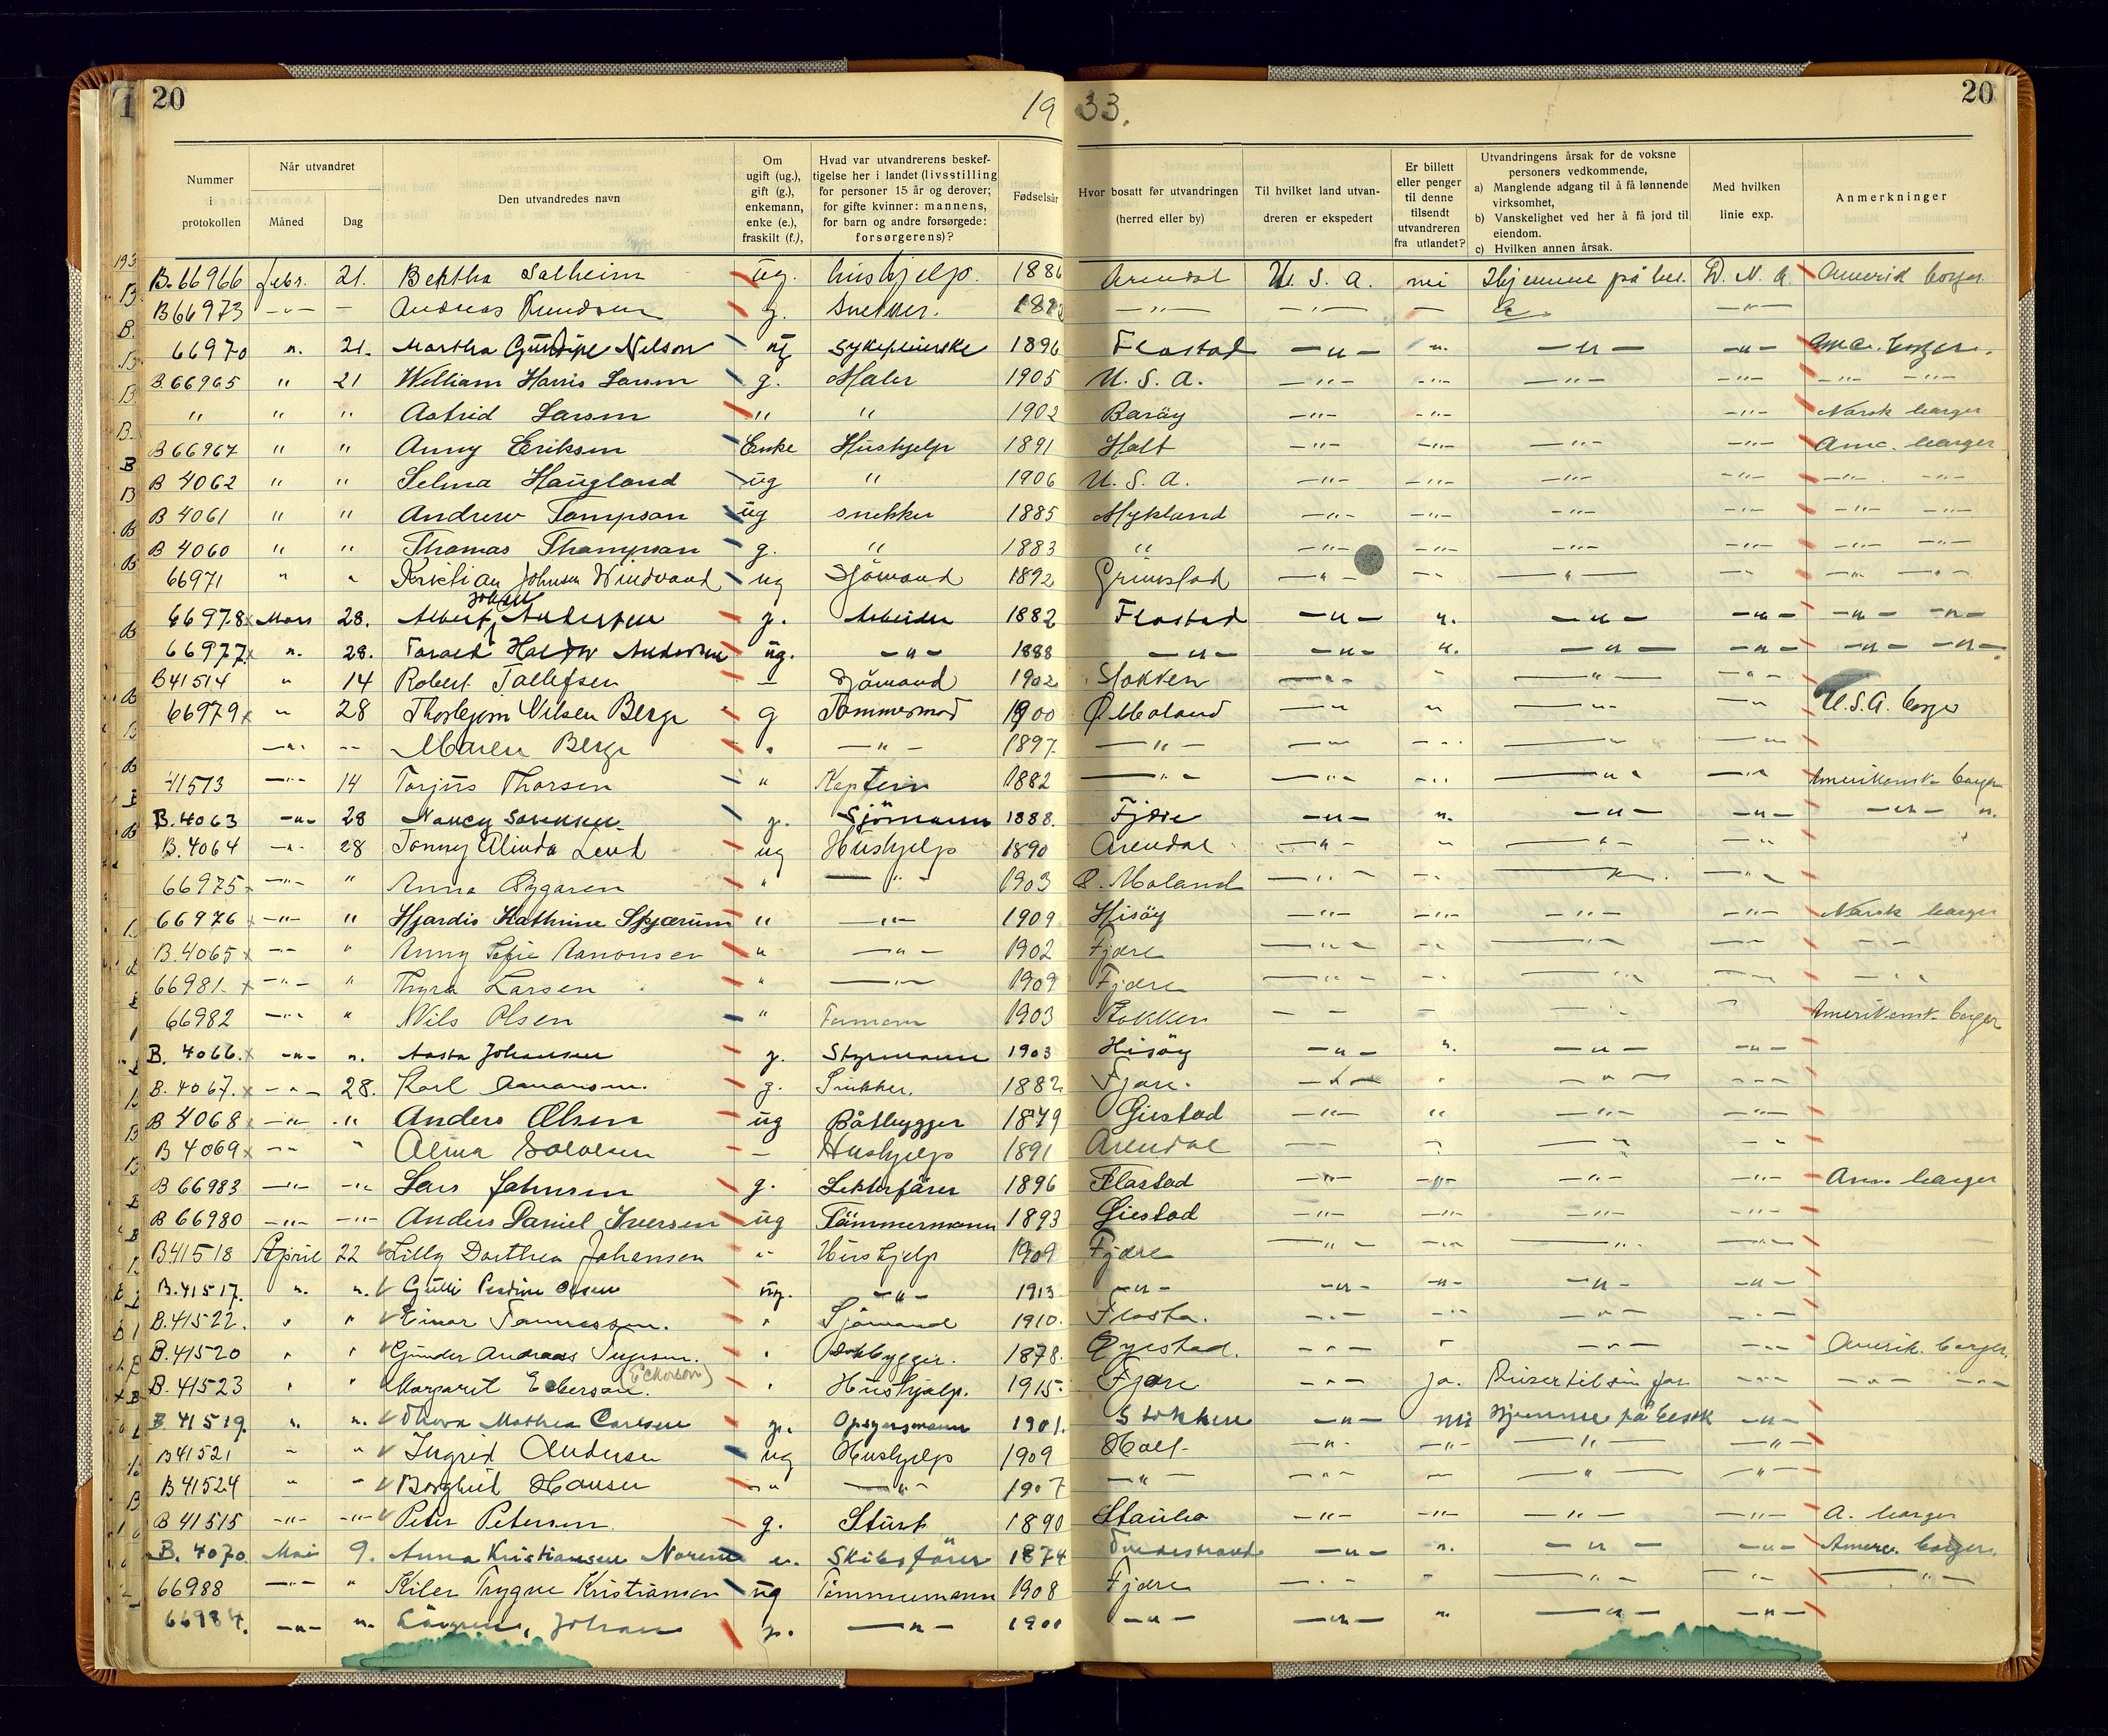 20
19 33.
20
Nummer i protokollen
Når utvandret
Måned
Dag
Den utvandredes navn
Om ugift (ug.), gift (g.), enkemann, enke (e.), fraskilt (f.),
Hvad var utvandrerens beskeftigelse her i landet (livsstilling for personer 15 år og derover; for gifte kvinner: mannens, for barn og andre forsørgede: forsørgerens)?
Fødselsår
Hvor bosatt før utvandringen (herred eller by)
Til hvilket land utvandreren er ekspedert
Er billett eller penger til denne tilsendt utvandreren fra utlandet?
Utvandringens årsak for de voksne personers vedkommende,
a) Manglende adgang til å få lønnende virksomhet,
b) Vanskelighet ved her å få jord til eiendom.
c) Hvilken annen årsak.
Med hvilken linie exp.
Anmerkninger
B. 66966 febr. 21. Bertha Salheim ug. hushjelp. 1886 Arendal U. S. A. nei Hjemme på bes. D. N. A. Amerik borger
B 66973 -"- — Andreas Knudsen g. Snekker. —"— —"— — —"—
66970 ". 21. Martha Nelson ug Sykepleierske 1896 Flostad —"— ". —"— —"— Ame. borger.
B. 66965 " 21 William Harris Larsen g. Maler 1905 U. S. A. —"— -"- —"— -"- —"— —"—
" " " Astrid Larsen " " 1902 Barøy —"— -"- -"- Norsk borger
B 66967 " " Anny Eriksen Enke Hushjelp 1891 Holt —"— -"- —"— -"- Ame. borger
B 4062 " " Selma Haugland ug " 1906 U. S. A. —"— -"- —"— -"- —"— -"-
B 4061 " " Andrew Tompson ug snekker 1885 Mykland —"— -"- —"— -"- -"- -"-
B 4060 " " Thomas Thompson g. " 1883 " —"— -"- —"— -"- -"- -"-
66971 " " Kristian Johnsen Windvand ug Sjömand 1892 Grimstad —"— -- —"— -"- -"- -"-
66978 x Mars 28. Albert Johan Andersen g. Arbeider 1882 Flostad —"— ". —"— —"— —"— —"—
66977 x ". 28. Andersen ug. —"— 1888 —"— —"— ". —"— —"— —"— —"—
B 41514 " 14 Robert Tallefsen — Sjömand 1902 Stokken —"— " —"— -"-
66979 x " 28 Thorbjørn Nilsen Berge g Tømmermand 1900 Ø Moland —"— " —"— —" U.S.A. borger
—"— -- Maren Berge " —"— 1897 —"— —" -"- —" —"
41513 —"— 14 Torjus Thorsen " Kaptein 1882 —"— —"— -"- —"— —"— Amerikansk borger
B. 4063 —"— 28 Nancy Sørensen g. Sjömann 1888. Fjære —"— ". —"— —"— —"— ".
B. 4064 —"— 28 Jonny Alinda Lind ug Hushjelp 1890 Arendal —"— " —"— —"
66975 x —"— " Anna " —"— 1903 Ø. Moland —"— -" — —"—
66976 x —"— " Hjørdis Kathrine Skjærum " —"— 1909 Hisöy —"— -"- —"— -"- Norsk borger
B. 4065 x —"— " Anny Sofie Aanonsen " —"— 1902 Fjære —"— -" —"— —" — —
66981 x —"— " Thyra Larsen " —"— 1909 Fjære —"— -" —"— —" — "
66982 —"— " Nils Olsen " Formann 1903 Stokken — — — — " Amerikansk borger
B. 4066. x —"— ". Aasta Johansen g. Styrmann 1903 Hisöy —"— ". —"— —"—
B. 4067. x —"— 28. Karl Aanonsen. g. Snekker. 1882 Fjære. —"— " —"— —"—
B 4068 x —"— " Anders Olsen ug Båtbygger 1879 Gjestad —"— " —"— -"-
B 4069 x —"— " Alma — Hushjelp 1891 Arendal — " —" -"
B 66983 —"— —"— Lars Johnsen g. Lekterfører 1896 Flostad —"— -"- —"— -"- Am. borger
B 66980 —"— —"— Anders Daniel Iversen ug Tømmermann 1893 Gjestad —"— -"- —"— -"-
B 41518 April 22 Lilly Dorthea Johansen " Hushjelp 1909 Fjære —"— -"- —"— —"—
B. 41517. ". ". Olsen ug. —"— 1913 —"— —"— —"— —"— —"—
B. 41522. " " Einar Tønnessen. " Sjömand 1910. Flosta. —"— -"- —"— —"—
B. 41520 " " Gunder Andreas " Båtbygger. 1878. Öyestad. —"— " —"— —"— Amerik. borger.
B. 41523 " " Margarit Eckerson. (Eckerson) " Hushjælp. 1915. Fjære —"— ja. Reiser til sin far —"— —"— —"—
B. 41519. ". ". Thora Mathea Carlsen g. Opsynsmann 1901. Stokken —"— nei Hjemme på besøk —"—
B 41521 " " Ingrid Andersen ug Hushjelp 1909 Holt —"— -"- —"— —"—
B 41524 " " Borghild Hansen -" —"— 1907 —"— —"— — —"— —"—
B 41515 —"— —"— Peter Petersen g. Stuert 1890 —"— -"- —"— —"— A. borger
B. 4070. Mai 9. Anna Kristiansen Noreim e. Skibsfører 1874 Tvedestrand —"— ". —"— —"— Amere. borger.
66988 —"— " Trygve Kristiansen ug Tømmermann 1908 Fjære —" " —"— —"— —"—
66984. —"— ". Johan g. —"— 1900 —"— —"— ". —"— —"—